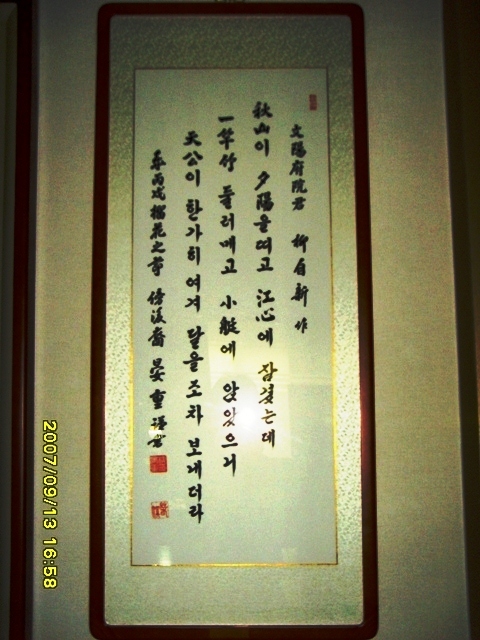 文陽府院君 柳自新 作
秋山이 夕陽을 띠고 江心에 잠겼는데
一竿竹 둘러메고 小艇에 앉았으니
天公이 한가히 여겨 달을 조차 보내더라
丙戌 榴花之節 傍後裔 重 書
2007/09/13 16:58